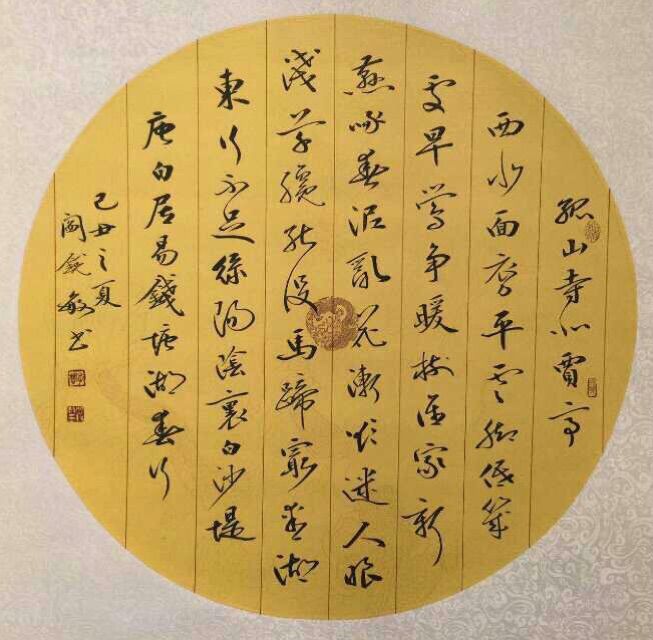 孤山寺北賈亭
西水面初平雲脚低幾
處早鶯争暖樹誰家新
燕啄春泥亂花漸欲迷人眼
淺草纔能沒馬蹄最愛湖
東行不足綠楊陰裏白沙堤
唐白居易錢塘湖春行
己丑之夏
閻敏书